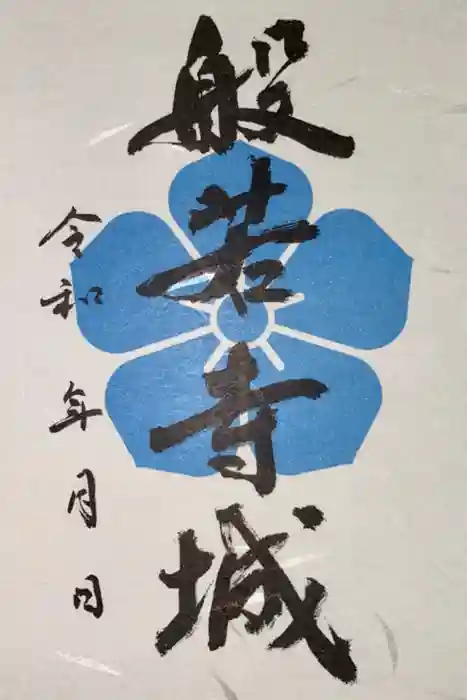 般若寺城
令和 年 月 日